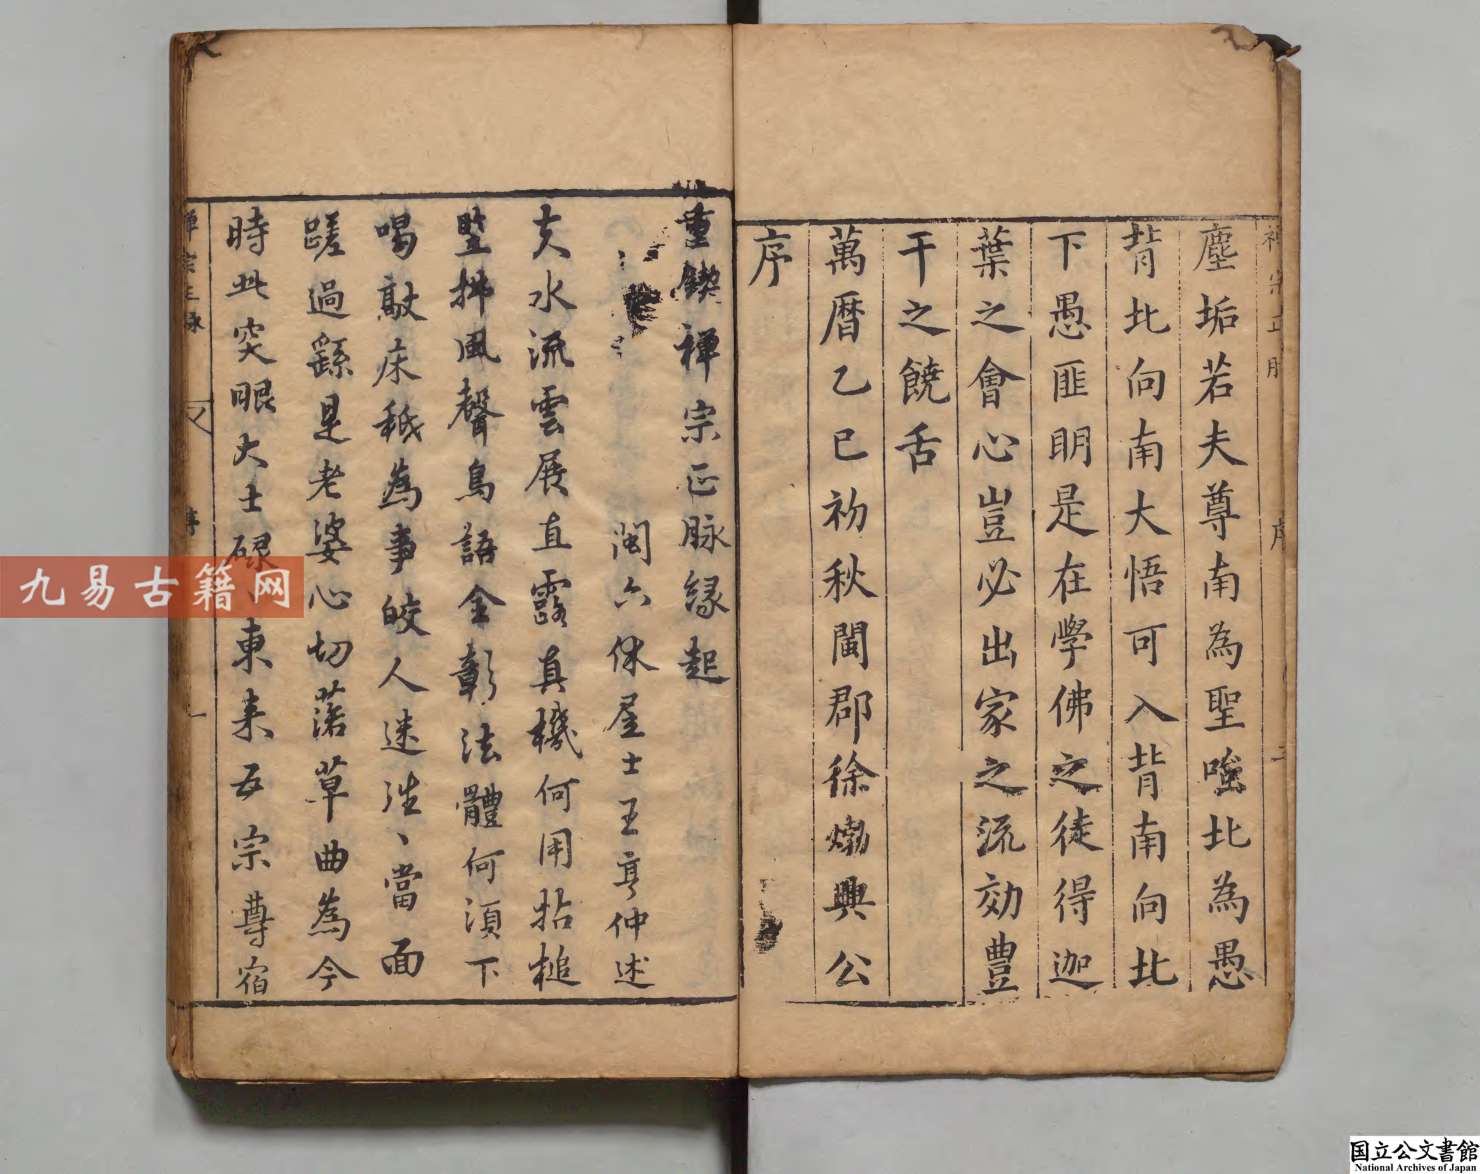 塵垢若夫尊南為聖嗤北為愚
背北向南大悟可入背南向北
下愚匪明是在學佛之徒得迦
葉之會心豈必出家之流効豊
干之饒舌
萬曆乙巳初秋閩郡徐𤊹興公
序
序
二
重鍥禪宗正脉緣起
閩六休居士王亨仲述
夫水流雲展直露真機何用拈槌
竪拂風聲鳥語全彰法體何須下
喝敲床秖為事皎人迷迷、當面
蹉過繇是老婆心切落草曲為今
時此突眼大士碌、東来五宗尊宿
禪宗正脉
序
一
九易古籍网
国立公文書館
National Archives of Japan